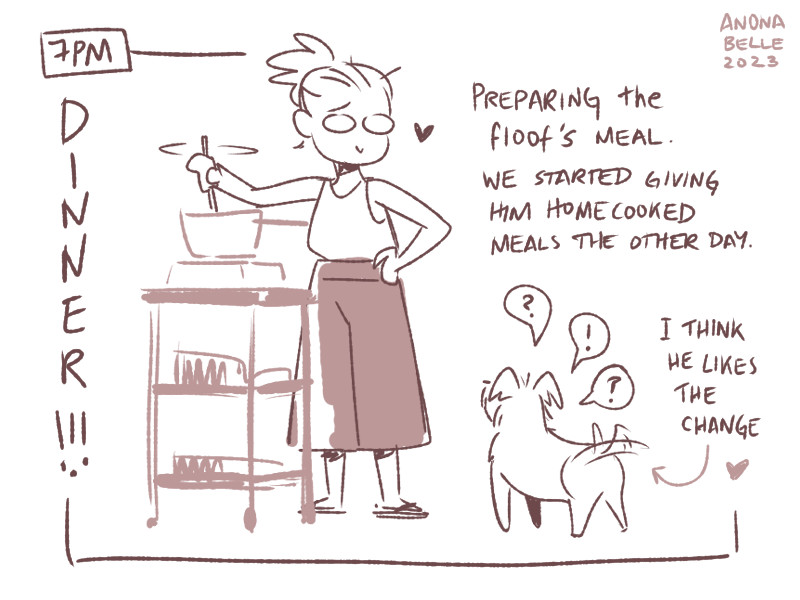 7PM
DINNER!!!
ANONA
BELLE
2023
PREPARING the
floof's MEAL.
WE STARTED GIVING
HIM HOMECOOKED
MEALS THE OTHER DAY.
?
!
?
I THINK
HE LIKES
THE
CHANGE